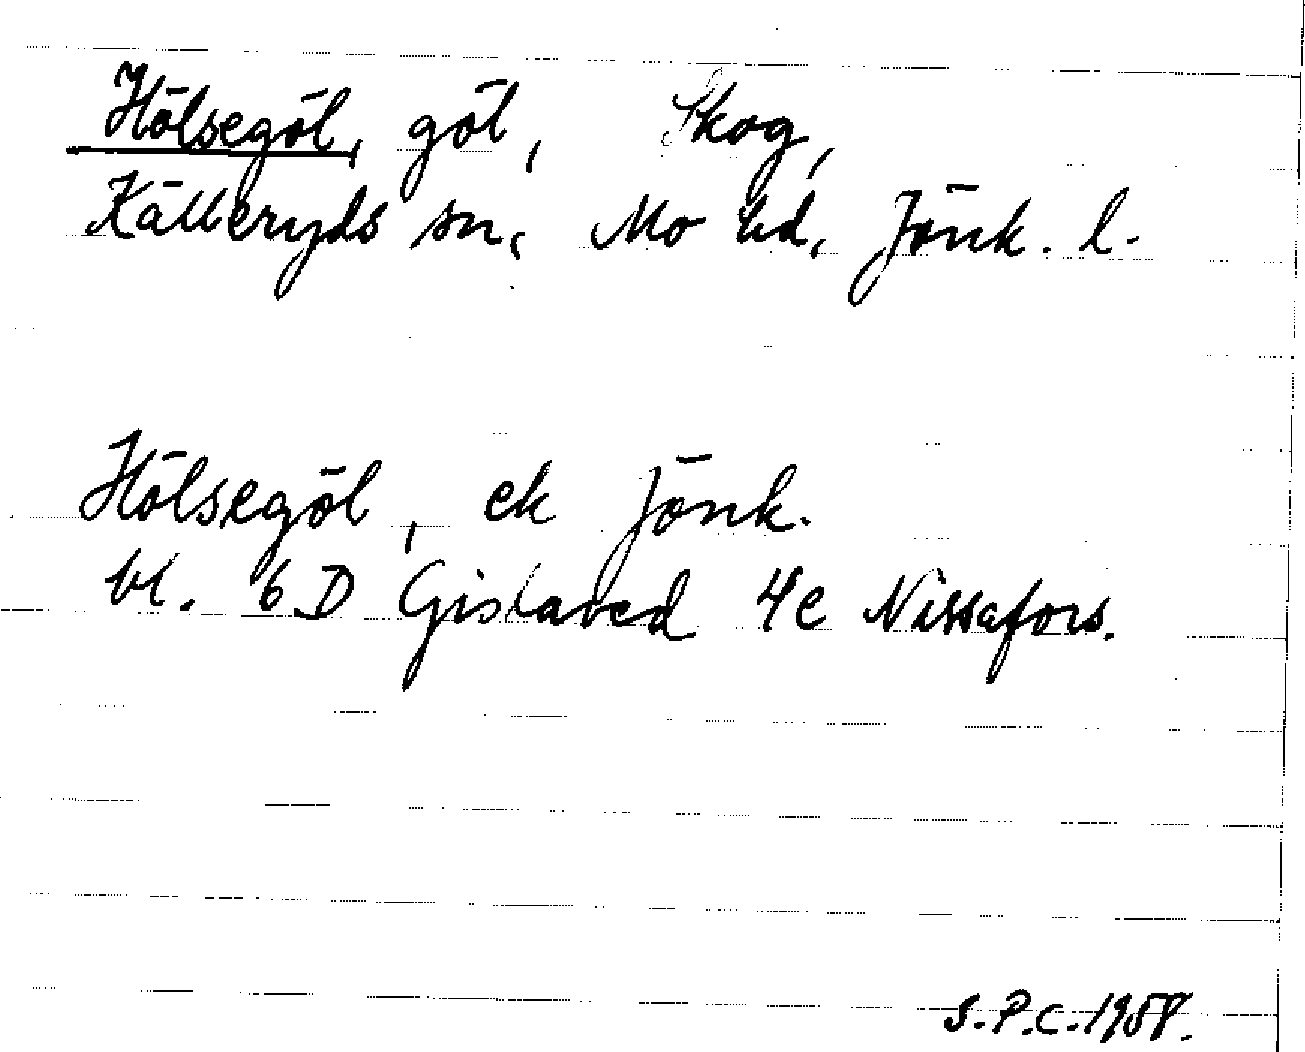 Hölsegöl, göl, Skog,
Källeryds sn, Mo hd, Jönk. l.
Hölsegöl, ek Jönk.
bl. 6D Gislaved 4e Nissafors.
S.P.C. 1958.